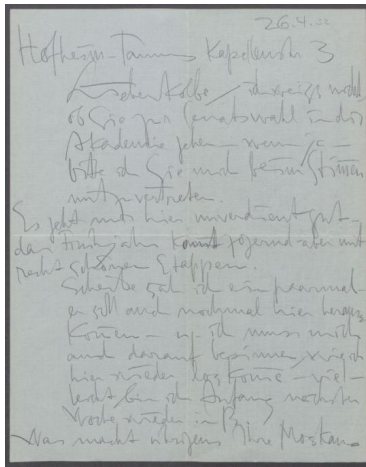 26.4.32
Hofheim-Taunus Kapellenstr 3
Lieber Kolbe, ich weiss nicht
ob Sie zur Senatswahl in die
Akademie gehen – wenn ja –
bitte ich Sie mich beim Stimmen
mit zu vertreten.
Es geht mir hier unverdient gut –
das Frühjahr kommt zögernd aber mit
recht schönen Etappen.
Scheibe sah ich ein paarmal
er soll auch nochmal hier heraus
kommen – u. ich muss mich
auch darauf besinnen, wie ich
hier wieder los komme – viel-
leicht bin ich Anfang nächster
Woche wieder in B.
Was macht übrigens Ihre Moskau-